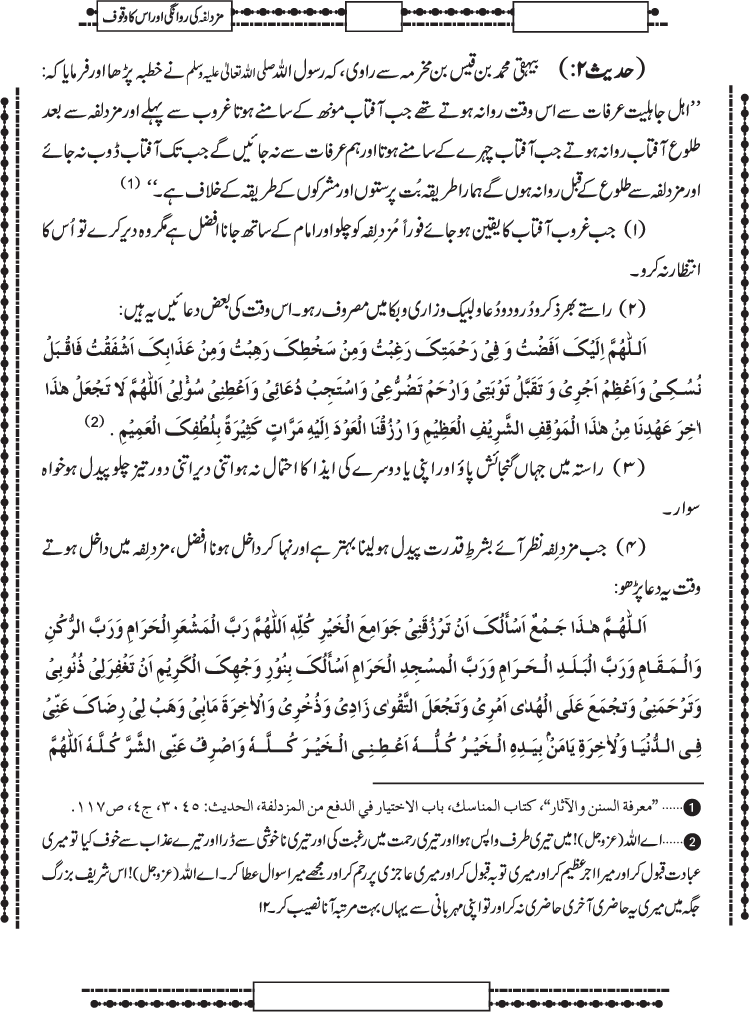 مزدلفہ کی روانگی اور اس کا وقوف
(حدیث ۲:) بیہقی محمد بن قیس بن مخرمہ سے راوی، کہ رسول اللہ صلی اللہ تعالیٰ علیہ وسلم نے خطبہ پڑھا اور فرمایا کہ:
’’اہل جاہلیت عرفات سے اس وقت روانہ ہوتے تھے جب آفتاب مونھ کے سامنے ہوتا غروب سے پہلے اور مزدلفہ سے بعد
طلوع آفتاب روانہ ہوتے جب آفتاب چہرے کے سامنے ہوتا اور ہم عرفات سے نہ جائیں گے جب تک آفتاب ڈوب نہ جائے
اور مزدلفہ سے طلوع کے قبل روانہ ہوں گے ہمارا طریقہ بُت پرستوں اور مشرکوں کے طریقہ کے خلاف ہے۔‘‘ (1)
(۱) جب غروب آفتاب کا یقین ہو جائے فوراً مُزدلِفہ کو چلو اور امام کے ساتھ جانا افضل ہے مگر وہ دیر کرے تو اُس کا
انتظار نہ کرو۔
(۲) راستے بھر ذکر و دُرود و دُعا و لبیک و زاری و بکا میں مصروف رہو۔ اس وقت کی بعض دعائیں یہ ہیں:
اَللّٰهُمَّ اِلَیْکَ اَفَضْتُ وَ فِیْ رَحْمَتِکَ رَغِبْتُ وَمِنْ سَخْطِکَ رَهِبْتُ وَمِنْ عَذَابِکَ اَشْفَقْتُ فَاقْبَلْ
نُسُکِیْ وَاَعْظِمْ اَجْرِیْ وَ تَقَبَّلْ تَوْبَتِیْ وَارْحَمْ تَضَرُّعِیْ وَاسْتَجِبْ دُعَائِیْ وَاَعْطِنِیْ سُؤْلِیْ اَللّٰهُمَّ لَا تَجْعَلْ هٰذَا
اٰخِرَ عَهْدِنَا مِنْ هٰذَا الْمَوْقِفِ الشَّرِیْفِ الْعَظِیْمِ وَا رْزُقْنَا الْعَوْدَ اِلَیْهِ مَرَّاتٍ کَثِیْرَةً بِلُطْفِکَ الْعَمِیْمِ . (2)
(۳) راستہ میں جہاں گنجائش پاؤ اور اپنی یا دوسرے کی ایذا کا احتمال نہ ہو اتنی دیر اتنی دور تیز چلو پیدل ہو خواہ
سوار۔
(۴) جب مزدلِفہ نظر آئے بشرطِ قدرت پیدل ہو لینا بہتر ہے اور نہا کر داخل ہونا افضل، مزدلِفہ میں داخل ہوتے
وقت یہ دعا پڑھو:
اَللّٰهُمَّ هٰذَا جَمْعٌ اَسْأَلُکَ اَنْ تَرْزُقَنِیْ جَوَامِعَ الْخَیْرِ کُلِّهٖ اَللّٰهُمَّ رَبَّ الْمَشْعَرِ الْحَرَامِ وَرَبَّ الرُّکْنِ
وَالْمَقَامِ وَرَبَّ الْبَلَدِ الْحَرَامِ وَرَبَّ الْمَسْجِدِ الْحَرَامِ اَسْأَلُکَ بِنُوْرِ وَجْهِکَ الْکَرِیْمِ اَنْ تَغْفِرَلِیْ ذُنُوبِیْ
وَتَرْحَمَنِیْ وَتَجْمَعَ عَلَی الْهُدٰی اَمْرِیْ وَتَجْعَلَ التَّقْوٰی زَادِیْ وَذُخْرِیْ وَالْاٰخِرَةَ مَاٰبِیْ وَهَبْ لِیْ رِضَاکَ عَنِّیْ
فِی الدُّنْیَا وَلْاٰخِرَةِ یَامَنْ بِیَدِهِ الْخَیْرُ کُلُّهٗ اَعْطِنِی الْخَیْرَ کُلَّهٗ وَاصْرِفْ عَنِّی الشَّرَّ کُلَّهٗ اَللّٰهُمَّ
1...... ”معرفة السنن والآثار“، كتاب المناسك، باب الاختيار في الدفع من المزدلفة، الحديث: ٣٠٤٥، ج٤، ص١١٧.
2......اے اللہ (عزوجل)! میں تیری طرف واپس ہوا اور تیری رحمت میں رغبت کی اور تیری ناخوشی سے ڈرا اور تیرے عذاب سے خوف کیا تو میری
عبادت قبول کر اور میرا اجر عظیم کر اور میری توبہ قبول کر اور میری عاجزی پر رحم کر اور مجھے میرا سوال عطا کر۔ اے اللہ (عزوجل)! اس شریف بزرگ
جگہ میں میری یہ حاضری آخری حاضری نہ کر اور تو اپنی مہربانی سے یہاں بہت مرتبہ آنا نصیب کر۔ ۱۲